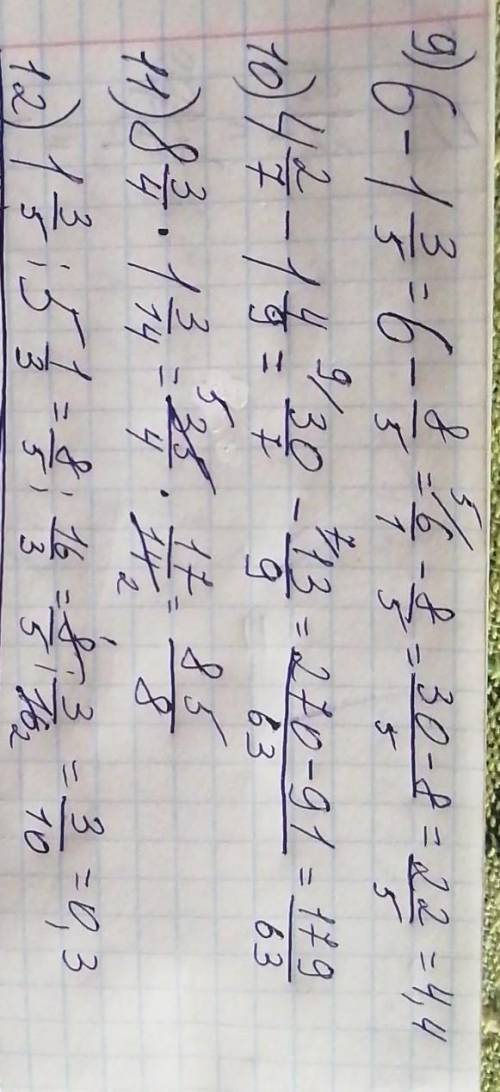 9) 6 - 1 3/5 = 6 - 8/5 = ⁵⁄ 6/1 - 8/5 = (30 - 8)/5 = 22/5 = 4,4
10) 4 2/7 - 1 4/9 = ⁹⁄ 30/7 - ⁷⁄ 13/9 = (270 - 91)/63 = 179/63
11) 8 3/4 · 1 3/14 = ⁵ 35/4 · 17/14 ₂ = 85/8
12) 1 3/5 : 5 1/3 = 8/5 : 16/3 = ¹ 8/5 · 3/16 ₂ = 3/10 = 0,3